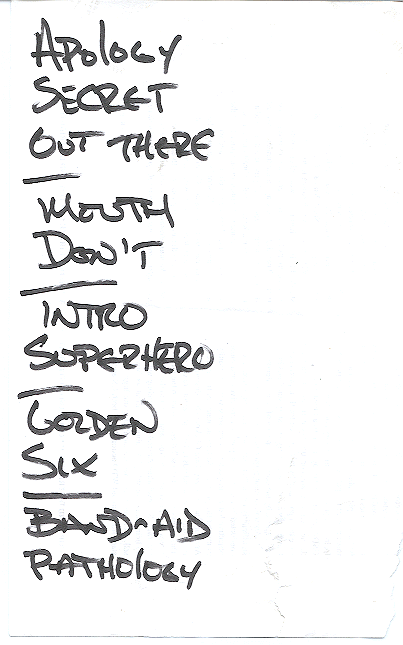 APOLOGY
SECRET
OUT THERE
MOUTH
DON'T
INTRO
SUPERHERO
GOLDEN
SIX
BAND-AID
PATHOLOGY